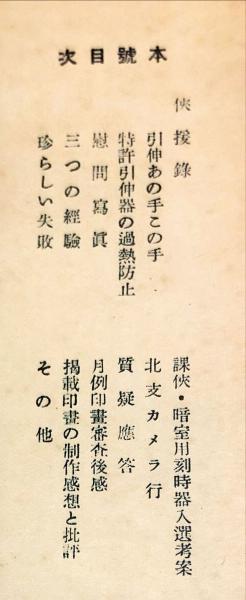 本號目次
俠援錄
引伸あの手この手
特許引伸器の過熱防止
慰問寫眞
三つの經驗
珍らしい失敗
課俠・暗室用刻時器入選考案
北支カメラ行
質疑應答
月例印畫審査後感
揭載印畫の制作感想と批評
その他